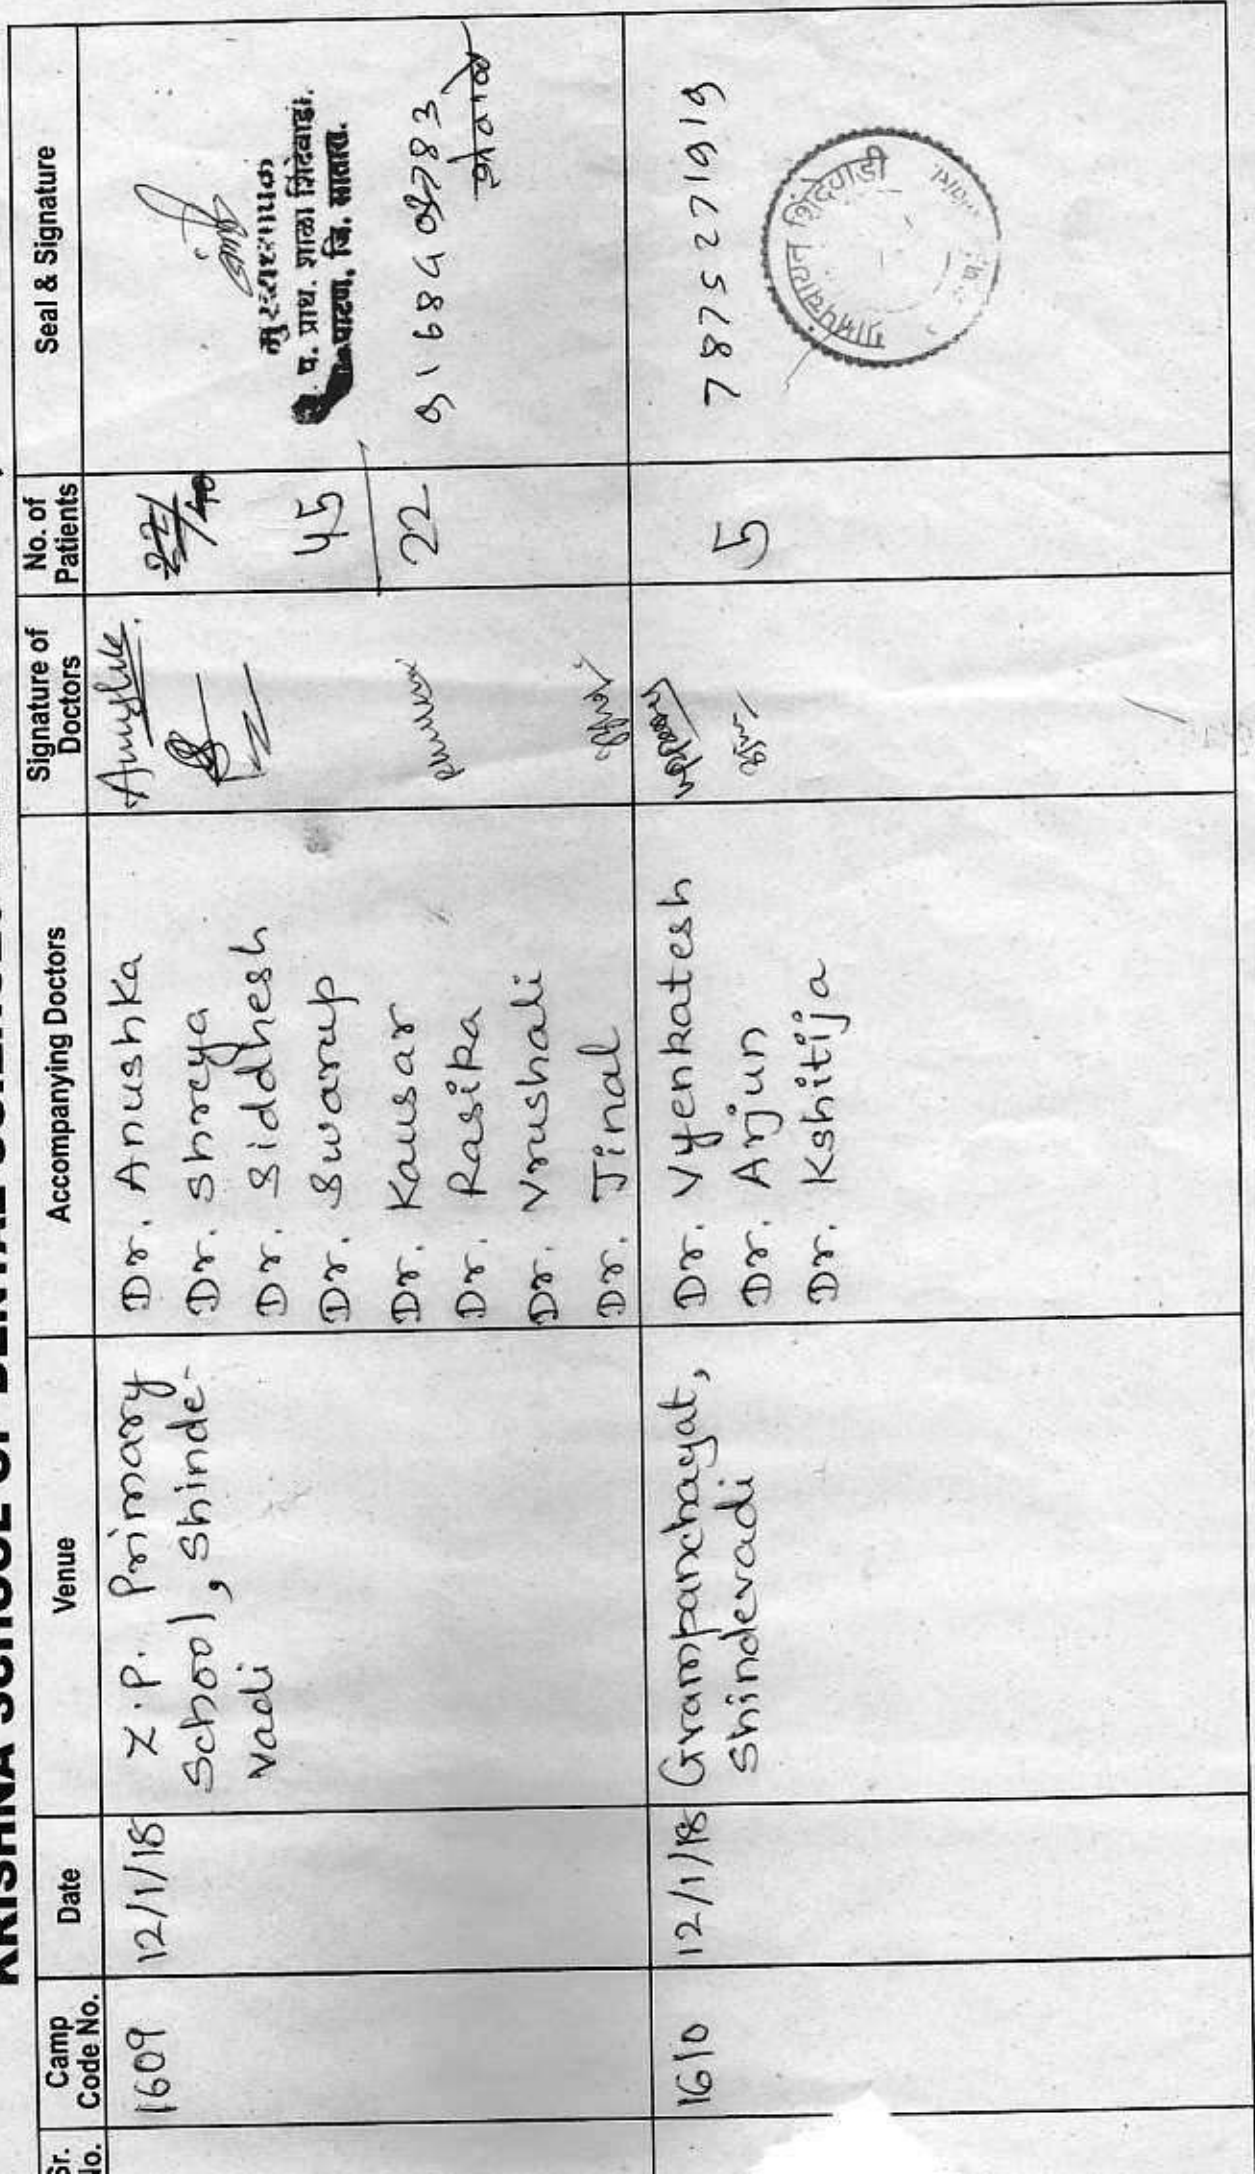 Sr. No.
Camp Code No.
Date
Venue
Accompanying Doctors
Signature of Doctors
No. of Patients
Seal & Signature
1609
12/1/18
Z.P. Primary
School, Shinde-
vadi
Dr. Anushka
Dr. Shreya
Dr. Siddhesh
Dr. Swarup
Dr. Kausar
Dr. Rasika
Dr. Vrushali
Dr. Jinal
45
22
मुख्याध्यापक
प. प्राथ. शाळा शिंदेवाडी.
पाटण, जि. सातारा.
1610
12/1/18
Grampanchayat,
Shindevadi
Dr. Vyenkatesh
Dr. Arjun
Dr. Kshitija
5
7875271919
ग्रामपंचायत शिंदेवाडी